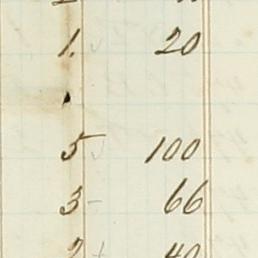 1. 20
5 100
3 - 66
2 + 40